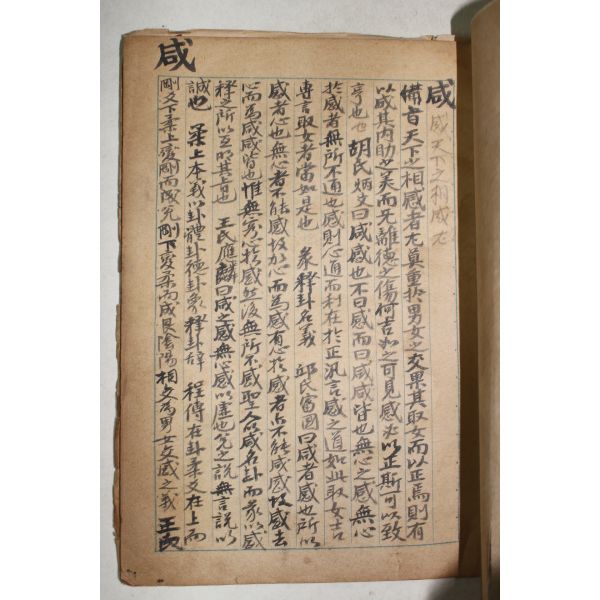 咸
咸
咸天下之相感者
備旨天下之相感者尤莫重於男女之交果其取女而以正焉則有
以成其內助之美而旡離德之傷何吉如之可見感必以正斯可以致
亨也 胡氏炳文曰咸感也不曰感而曰咸咸皆也無心之感無心
於感者無所不通也感則心通而利在於正汎言感之道如此取女吉
專言取女者當如是也 彖釋卦名義 邱氏富國曰咸者感也所以
感者心也無心者不能感故加心而為感有心於感者亦不能咸感故去
心而為咸咸皆也惟無容心於感然後無所不感聖人以咸名卦而彖以感
釋之所以互明其旨也 王氏應麟曰咸之感無心感以虛也兌之說無言說以
誠也 柔上本義以卦體卦德卦象釋卦辞 程傳在卦柔爻在上而
剛爻下柔上變剛而成兌剛下變柔而成艮陰陽相交為男女交感之義 王氏